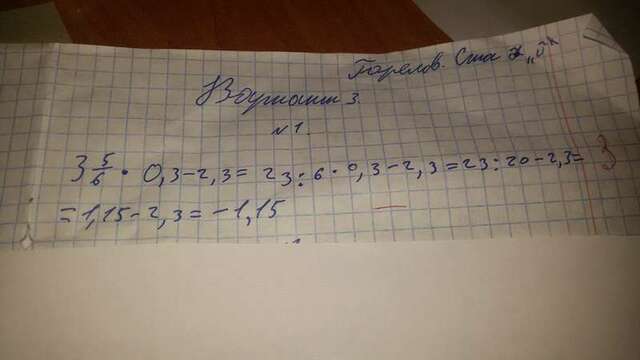 Горелов.
Вариант 3.
№1.
3 5/6 · 0,3-2,3= 23:6·0,3-2,3=23:20-2,3= 3
=1,15-2,3=-1,15